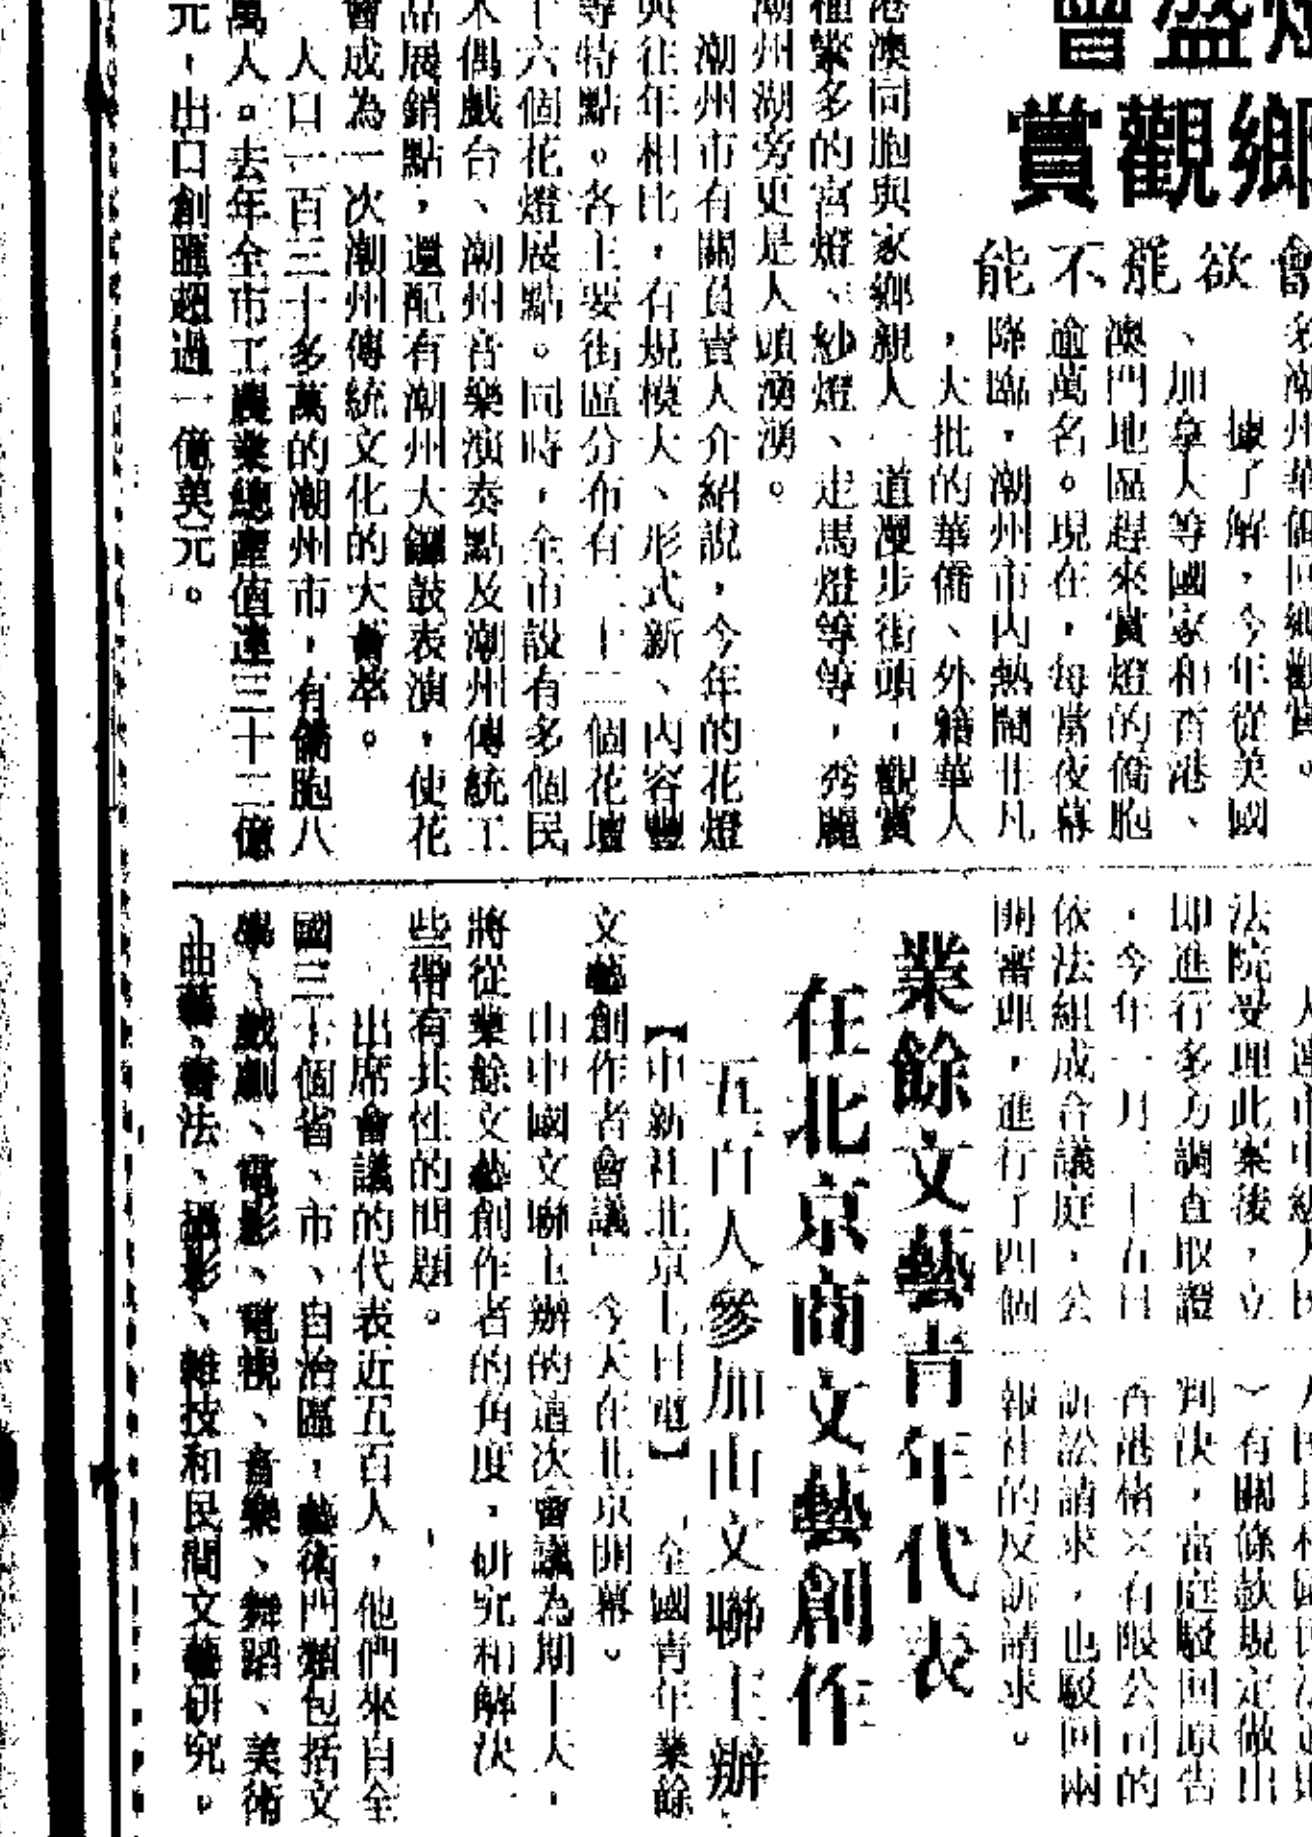 燈盛會
鄉觀賞
會欲罷不能
據了解,今年從美國
、加拿大等國家和香港、
澳門地區趕來賞燈的僑胞
逾萬名。現在,每當夜幕
降臨,潮州市內熱鬧非凡
,大批的華僑、外籍華人
港澳同胞與家鄉親人一道漫步街頭,觀賞
種類繁多的宮燈、紗燈、走馬燈等等,秀麗
潮州湖旁更是人頭湧湧。
潮州市有關負責人介紹說,今年的花燈
與往年相比,有規模大、形式新、內容豐
等特點。各主要街區分布有二十二個花壇
十六個花燈展點。同時,全市設有多個民
木偶戲台、潮州音樂演奏點及潮州傳統工
品展銷點,還配有潮州大鑼鼓表演,使花
會成為一次潮州傳統文化的大薈萃。
人口一百三十多萬的潮州市,有僑胞八
萬人。去年全市工農業總產值達三十二億
元,出口創匯超過一億美元。
法院受理此案後,立
即進行多方調查取證
,今年一月二十五日
依法組成合議庭,公
開審理,進行了四個
︶有關條款規定做出
判決,當庭駁回原告
香港格×有限公司的
訴訟請求,也駁回兩
報社的反訴請求。
業餘文藝青年代表
在北京商文藝創作
五百人參加由文聯主辦
【中新社北京七日電】「全國青年業餘
文藝創作者會議」今天在北京開幕。
由中國文聯主辦的這次會議為期十天,
將從業餘文藝創作者的角度,研究和解決
些帶有共性的問題。
出席會議的代表近五百人,他們來自全
國三十個省、市、自治區,藝術門類包括文
學、戲劇、電影、電視、音樂、舞蹈、美術
、曲藝、書法、攝影、雜技和民間文藝研究。